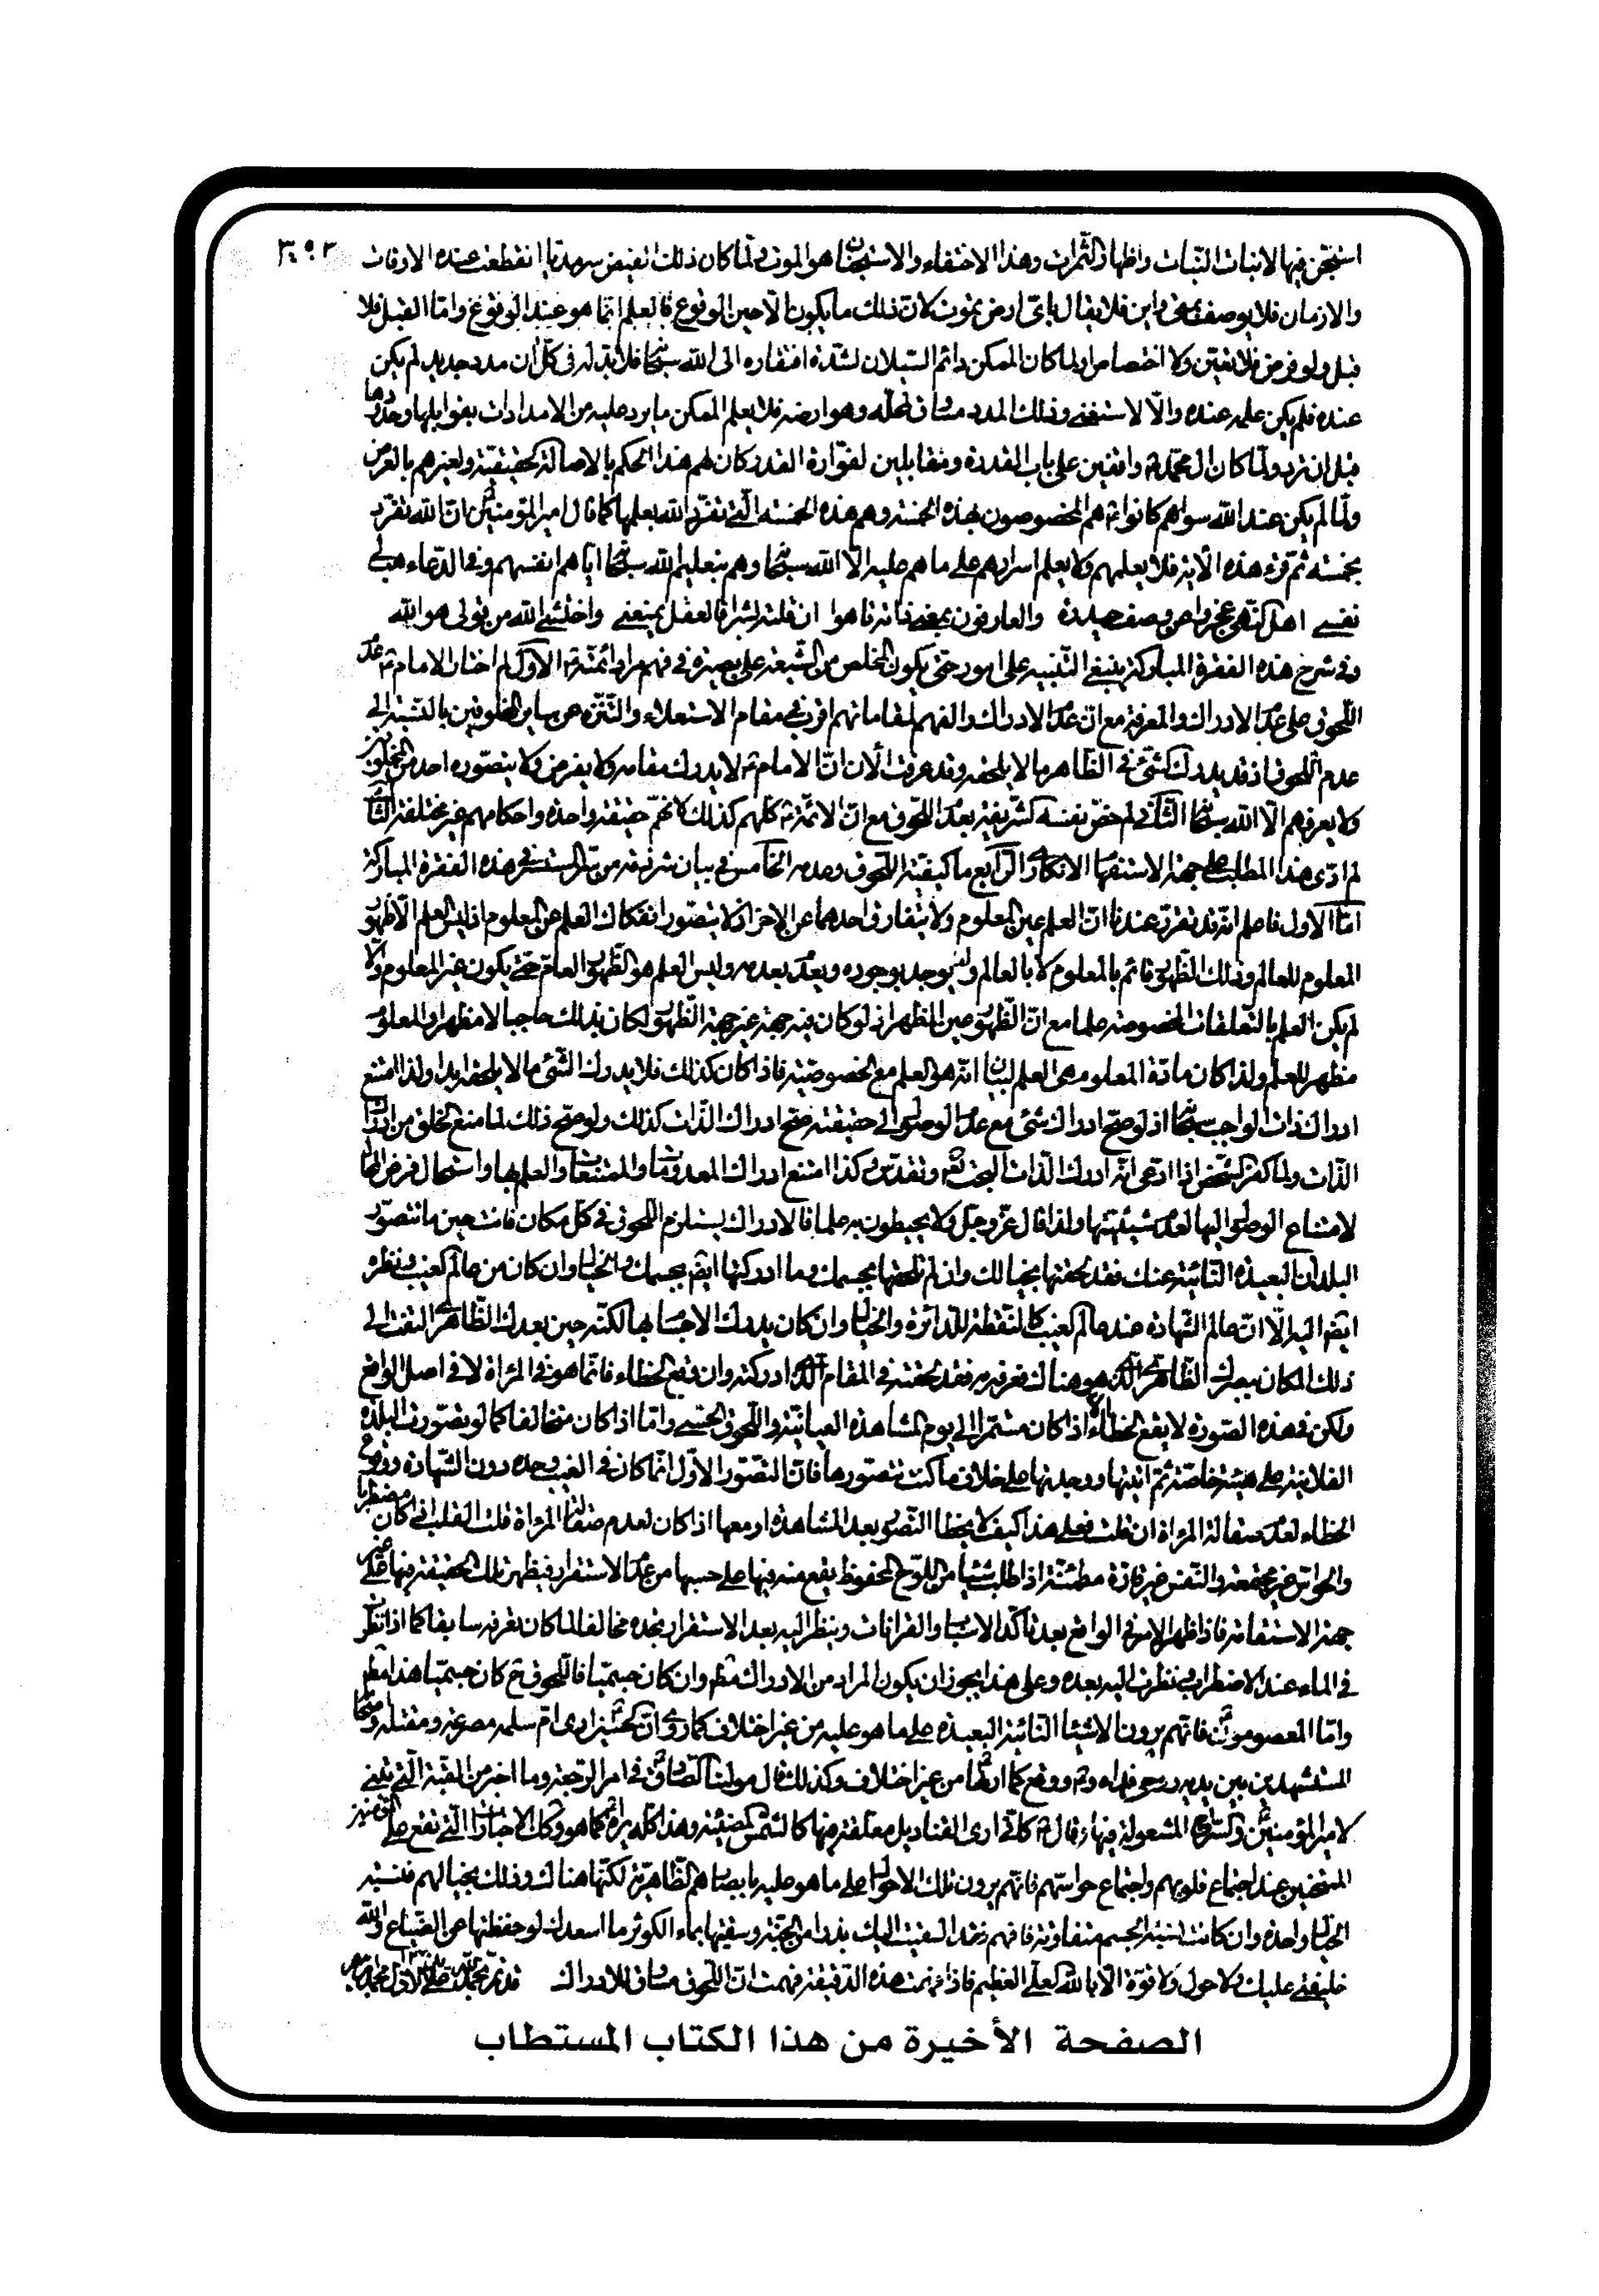 استجن فيها لانبات النبات واظهار الثمرات وهذا الاختفاء والاستجنان هو الموت ولما كان ذلك الفيض سرمديا انقطعت عنده الاوقات
والازمان فلا يوصف بمتى واين فلا يقال باى ارض يموت لان ذلك ما يكون الا حين الوقوع فالعلم انما هو عند الوقوع واما القبل فلا
قبل ولو فرض فلا تعين ولا اختصاص ولما كان الممكن دائم السيلان لشدة افتقاره الى الله سبحانه فلا بد له فى كل ان مدد جديد لم يكن
عنده فلم يكن علمه عنده والا لاستغنى وذلك المدد مساوق لمحله وعوارضه فلا يعلم الممكن ما يرد عليه من الامدادات بقوابلها وحدودها
قبل ان ترد ولما كان ال محمد واقفين على باب القدرة ومقابلين لفوارة القدر كان لهم هذا الحكم بالاصالة الحقيقية ولغيرهم بالعرض
ولما لم يكن عند الله سواهم كانوا هم المخصوصون بهذه الخمسة وهم هذه الخمسة التى تفرد الله بعلمها كما قال امير المؤمنين ان الله تفرد
بخمسة ثم قرء هذه الاية فلا يعلمهم ولا يعلم اسرارهم على ما هم عليه الا الله سبحانه وهم بتعليم الله سبحانه اياهم انفسهم وفى الدعاء
وفى شرح هذه الفقرة المباركة ينبغى التنبيه على امور حتى يكون المخلص من الشيعة على بصيرة فى فهم مراد ائمته الاول لم اختار الامام عدم
اللحوق على عدم الادراك والمعرفة مع ان عدم الادراك والفهم لمقاماتهم اقوى فى مقام الاستعلاء والتنزه عن ساير المخلوقين بالنسبة الى
عدم اللحوق اذ قد يدرك شىء فى الظاهر ما لا يلحقه وقد عرفت الان ان الامام لا يدرك مقامه ولا يفرض ولا يتصوره احد من المخلوقين
ولا يعرفهم الا الله سبحانه الثانى لم خص نفسه الشريفة بعدم اللحوق مع ان الائمة كلهم كذلك لانهم حقيقة واحدة واحكامهم غير مختلفة الثالث
لم ادى هذا المطلب على جهة الاستفهام الانكارى الرابع ما كيفية اللحوق وعدمه الخامس فى بيان شرذمة من سر السنة فى هذه الفقرة المباركة
اما الاول فاعلم انه قد تقرر عندنا ان العلم عين المعلوم ولا يتفارق احدهما عن الاخر اذ لا يتصور انفكاك العلم عن المعلوم اذ ليس العلم الا ظهور
المعلوم للعالم وذلك الظهور قائم بالمعلوم لا بالعالم ولذا يوجد بوجوده ويعدم بعدمه وليس العلم هو الظهور العام حتى يكون غير المعلوم والا
لم يكن العلم بالتعلقات المخصوصة علما مع ان الظهور عين المظهر اذ لو كان فيه جهة غير جهة الظهور لكان بذلك حاجبا لا مظهرا والمعلوم
مظهر للعلم ولذا كان مادة المعلوم هى العلم لبيان انه هو العلم مع الخصوصية فاذا كان كذلك فلا يدرك الشىء ما لا يلحقه ابدا ولذا امتنع
ادراك ذات الواجب سبحانه اذ لو صح ادراك شىء مع عدم الوصول الى حقيقته صح ادراك الذات كذلك ولو صح ذلك لما منع الخلق من ادراك
الذات ولما كفر الشخص اذا ادعى انه ادرك الذات البحت تعالى وتقدس وكذا امتنع ادراك المعدومات والممتنعات والعلم بها واستحال فرض المحال
لامتناع الوصول اليها لعدم شيئيتها ولذا قال عز وجل ولا يحيطون به علما فالادراك يستلزم اللحوق فى كل مكان فانت حين ما تتصور
البلدان البعيدة النائية عنك فقد لحقتها بخيالك وان لم تلحقها بجسمك وما ادركتها ايضا بجسمك والخيال وان كان من عالم الغيب ونظره
ايضا اليه الا ان عالم الشهادة عند عالم الغيب كالنقطة للدائرة والخيال وان كان يدرك الاجسام بها لكنه حين بعدك الظاهرى التفت الى
ذلك المكان ببصرك الظاهرى الذى هو هناك فعرفه به فقد لحقته فى المقام الذى ادركته وان وقع الخطاء فانما هو فى المراة لا فى اصل الواقع
ولكن فى هذه الصورة لا يقع الخطاء الا اذا كان مستمرا الى يوم المشاهدة العيانية واللحوق الحسى واما اذا كان متخالفا كما لو تصورت البلدة
الفلانية على هيئة خاصة ثم اتيتها ووجدتها على خلاف ما كنت تتصورها فان التصور الاول انما كان فى الغيب وحده دون الشهادة ووقوع
الخطاء لعدم صقالة المراة ان قلت فعلى هذا كيف لا يخطا التصور بعد المشاهدة او معها اذا كان لعدم صقالة المراة قلت القلب اذا كان مضطربا
والحواس غير مجتمعة والنفس غير قارة مطمئنة اذا طلب شيئا من اللوح المحفوظ يقع منه فيها على حسبها من عدم الاستقرار فيظهر تلك الحقيقة فيها على غير
جهة الاستقامة فاذا ظهر الامر فى الواقع بعد تاكد الاسباب والقرانات وينظر اليه بعد الاستقرار يجده مخالفا لما كان يعرفه سابقا كما اذا نظرت
فى الماء عند الاضطراب ثم نظرت اليه بعده وعلى هذا يجوز ان يكون المراد من الادراك مطلقا وان كان جسميا فاللحوق ح كان جسميا هذا
واما المعصومون فانهم يرون الاشياء النائية البعيدة على ما هو عليه من غير اختلاف كما روى ان الحسين ارى ام سلمه مصرعه ومقتله
المستشهدين بين يديه روحى فداه ووقع كما اراها من غير اختلاف وكذلك قال مولينا الصادق فى امر الرجعة وما اخبر من القبة التى تبنى
لامير المؤمنين والسرج المشعولة فيها قال كانى ارى القناديل معلقة فيها كالشمس المضيئة وهذا كله يراه كما هو وكل الاخبارات التى تقع على
الممتحنين عند اجتماع قلوبهم واجتماع حواسهم فانهم يرون تلك الاحوال على ما هو عليه بابصارهم الظاهرية لكنها هناك وذلك بخيالهم فنسبة
الخيال واحدة وان كانت نسبة الجسم متفاوتة فافهم فقد القيت اليك بذرا من الجنة وسقيتها بماء الكوثر ما اسعدك لو حفظتها عن الضياع والله
خليفتى عليك ولا حول ولا قوة الا بالله العلى العظيم فاذا فهمت هذه الدقيقة فهمت ان اللحوق مساوق للادراك
الصفحة الأخيرة من هذا الكتاب المستطاب